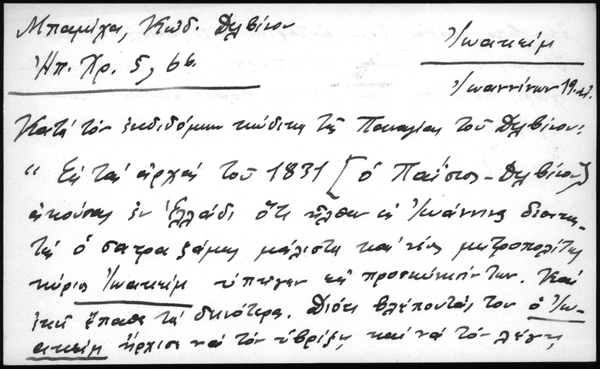 Μπαμίχα, Κώδ. Δελβίνου
Ἠπ. Χρ. 5, 66.
Ἰωακείμ
Ἰωαννίνων 19 αἰ.
Κατά τόν ἐκδιδόμενον κώδικα τῆς Παναγίας τοῦ Δελβίνου:
“ Εἰς τάς ἀρχάς τοῦ 1831 [ὁ Παΐσιος-Δελβίνου]
ἀκούσας ἐν Ἑλλάδι ὅτι ἦλθεν εἰς Ἰωάννινα διοικη-
τής ὁ σατραζάμης μάλιστα καί νέος μητροπολίτης
κύριος Ἰωακείμ ὑπῆγεν εἰς προσκύνησίν των. Καί
ἐκεῖ ἔπαθε τά δεινότερα. Διότι βλέποντάς τον ὁ Ἰω-
ακείμ ἤρχισε νά τόν ὑβρίζῃ καί νά τόν λέγῃ